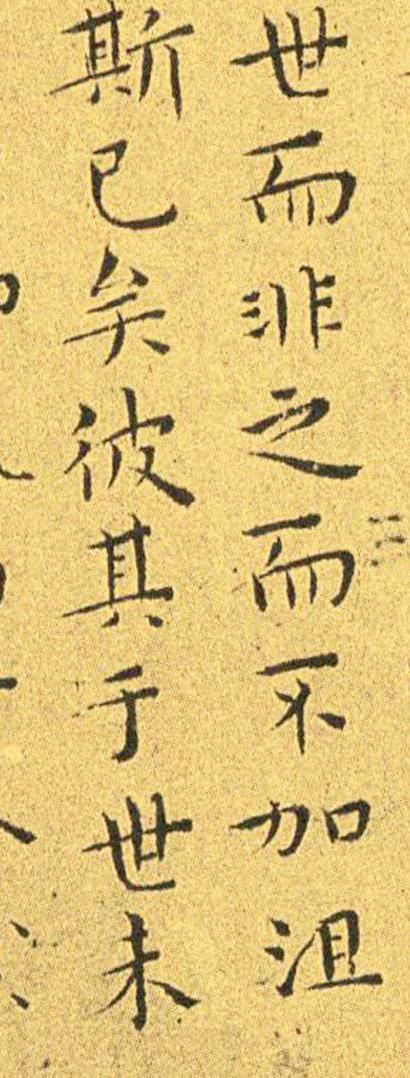 世而非之而不加沮
斯已矣彼其于世未